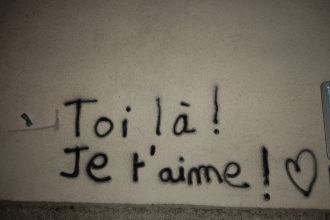 Toi là !
Je t'aime ! ♡